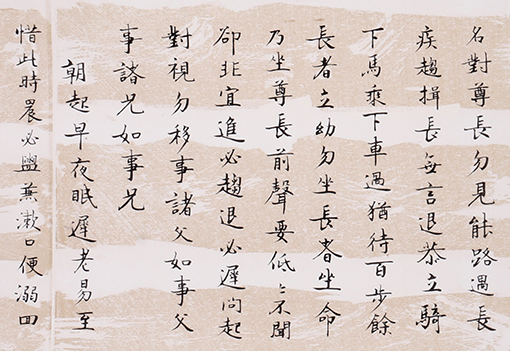 名對尊長勿見能路遇長
疾趨揖長無言退恭立騎
下馬乘下車過猶待百步餘
長者立幼勿坐長者坐命
乃坐尊長前聲要低〻不聞
卻非宜進必趨退必遲問起
對視勿移事諸父如事父
事諸兄如事兄
朝起早夜眠遲老易至
惜此時晨必盥兼漱口便溺回